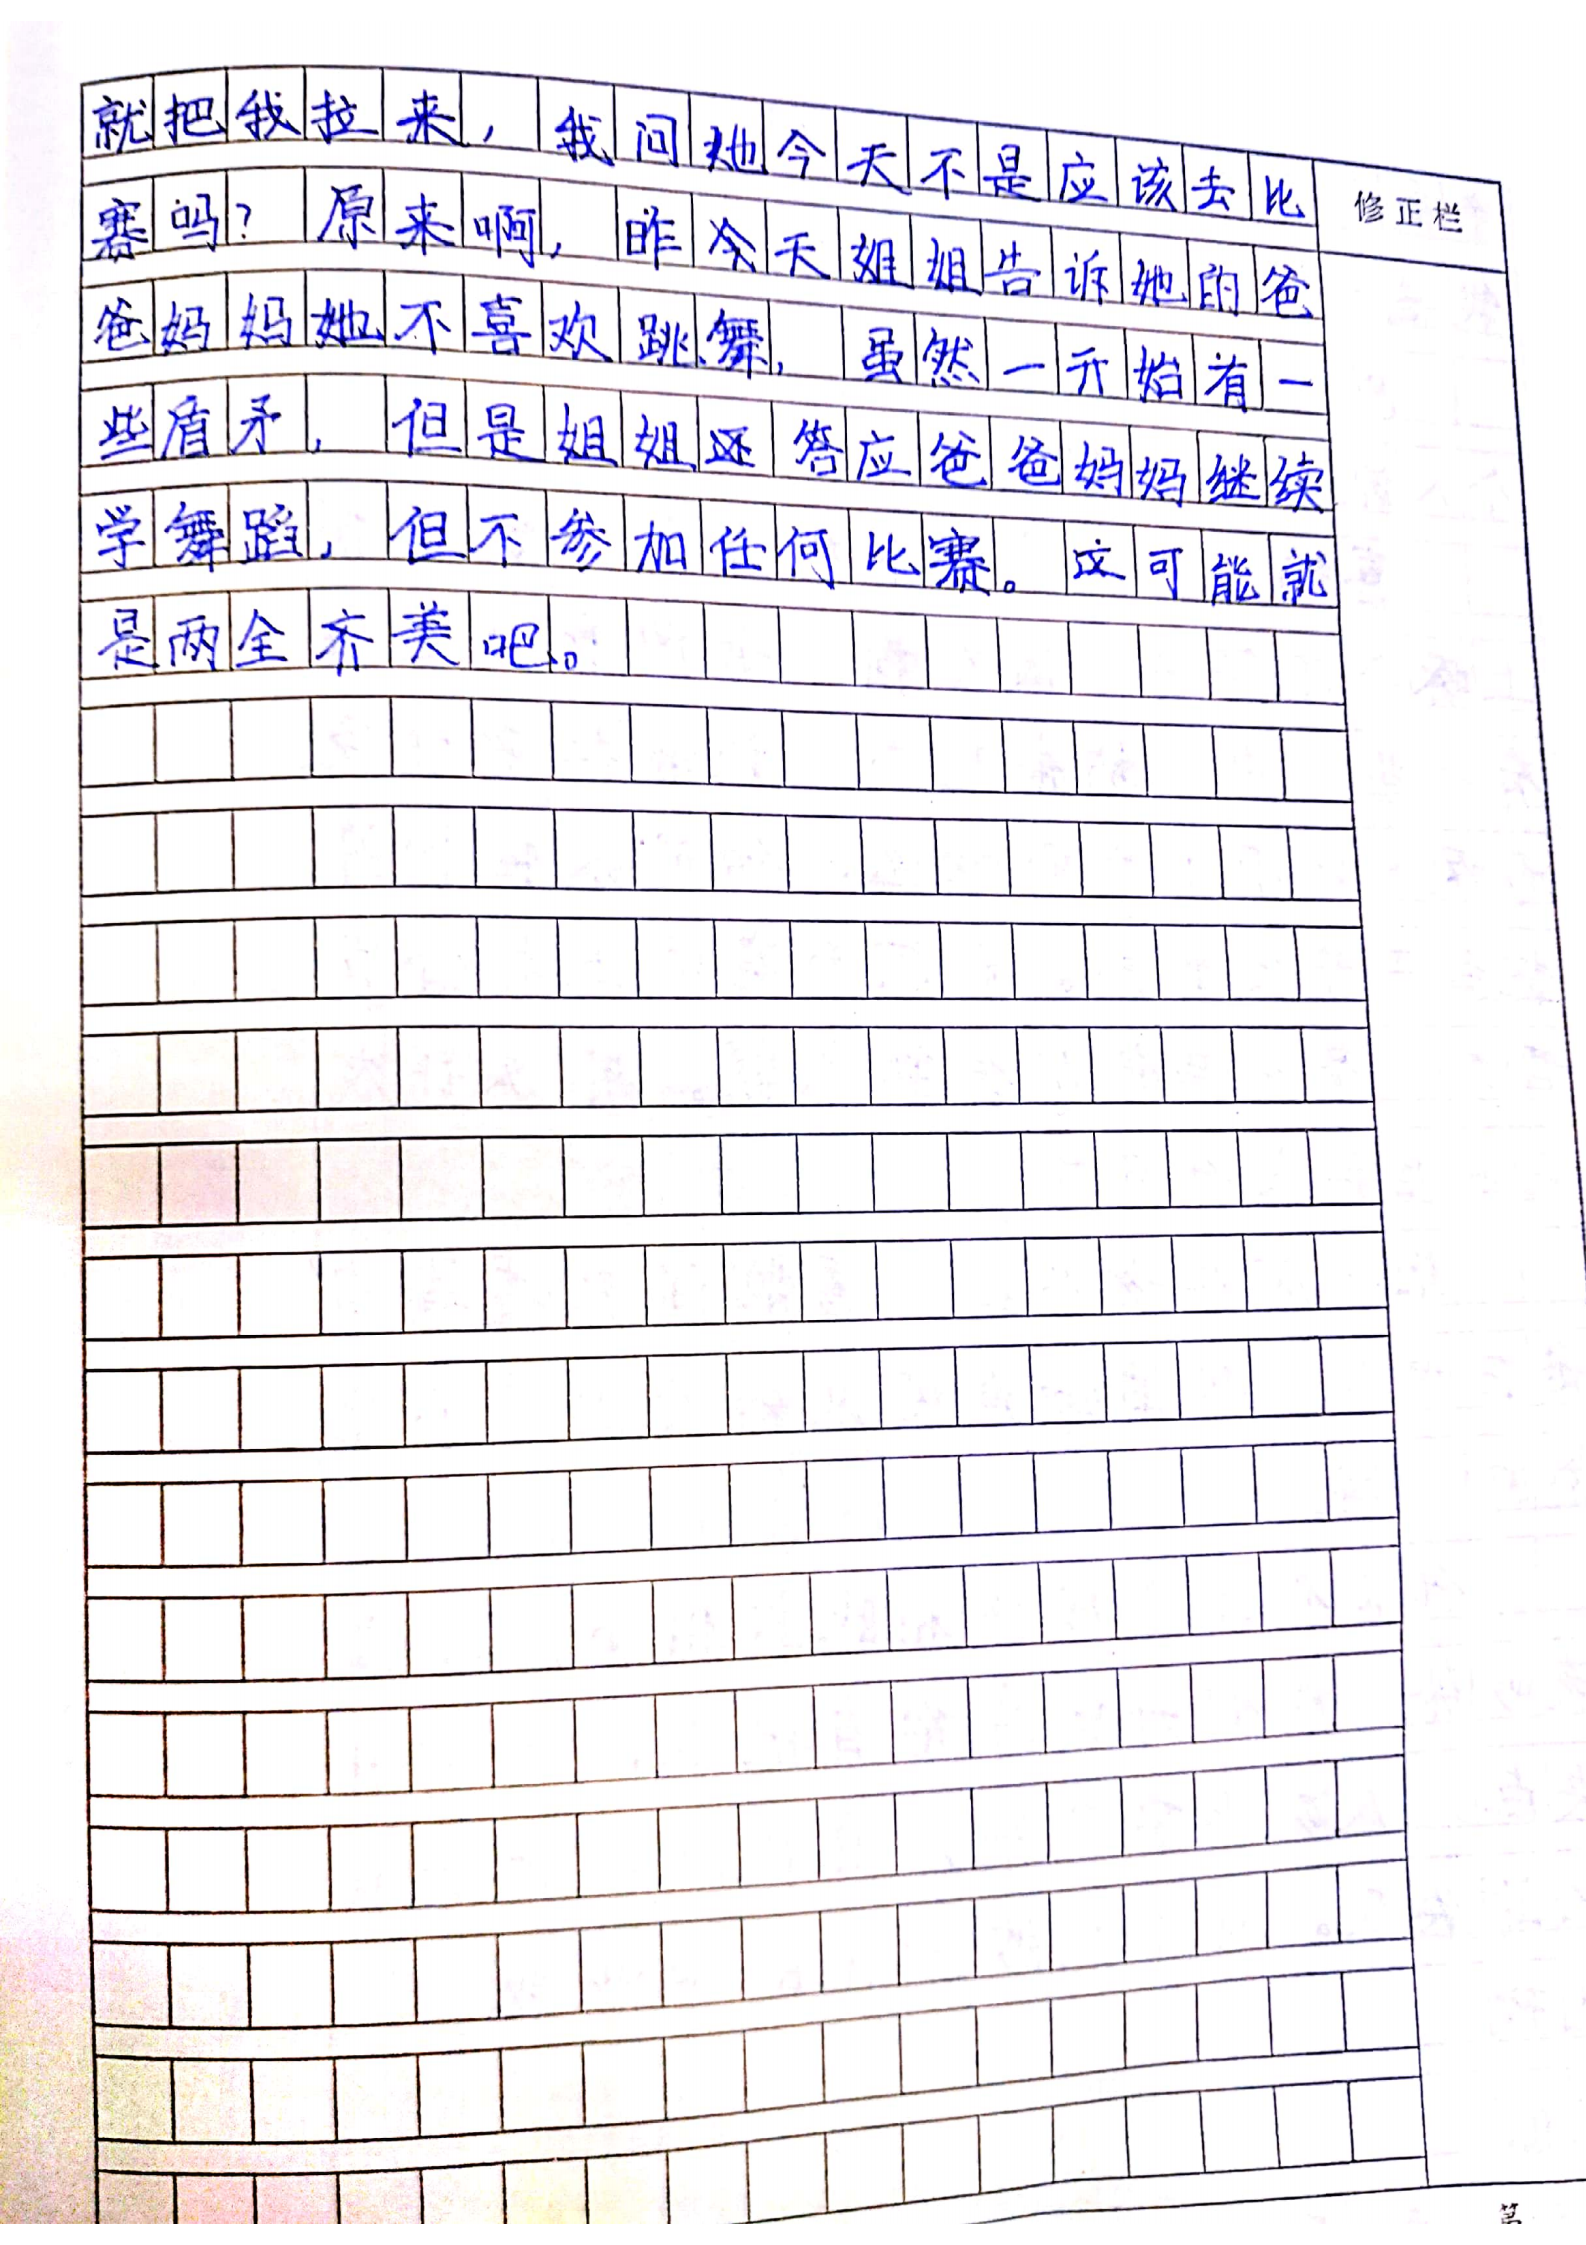 就把我拉来，我问她今天不是应该去比
赛吗？原来啊，昨天姐姐告诉她的爸
爸妈妈她不喜欢跳舞，虽然一开始有一
些盾矛，但是姐姐还答应爸爸妈妈继续
学舞蹈，但不参加任何比赛。这可能就
是两全齐美吧。
修正栏
第